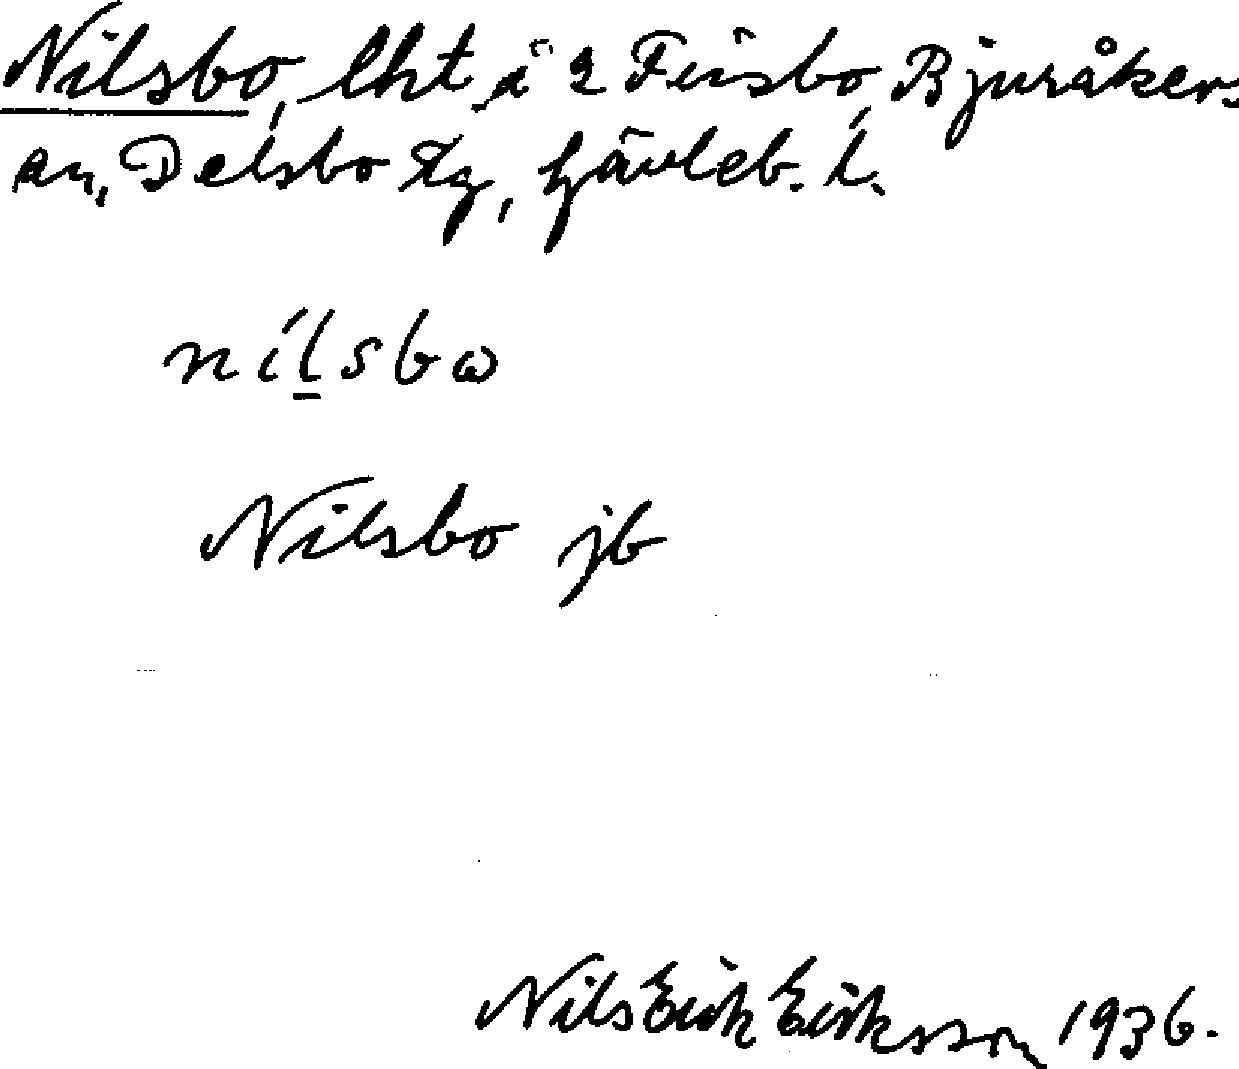 Nilsbo, lht i 2 Furbo, Bjuråkers
sn, Delsbo tg, Gävleb. l.
nílsbω
Nilsbo jb
Nils Erik Eriksson 1936.